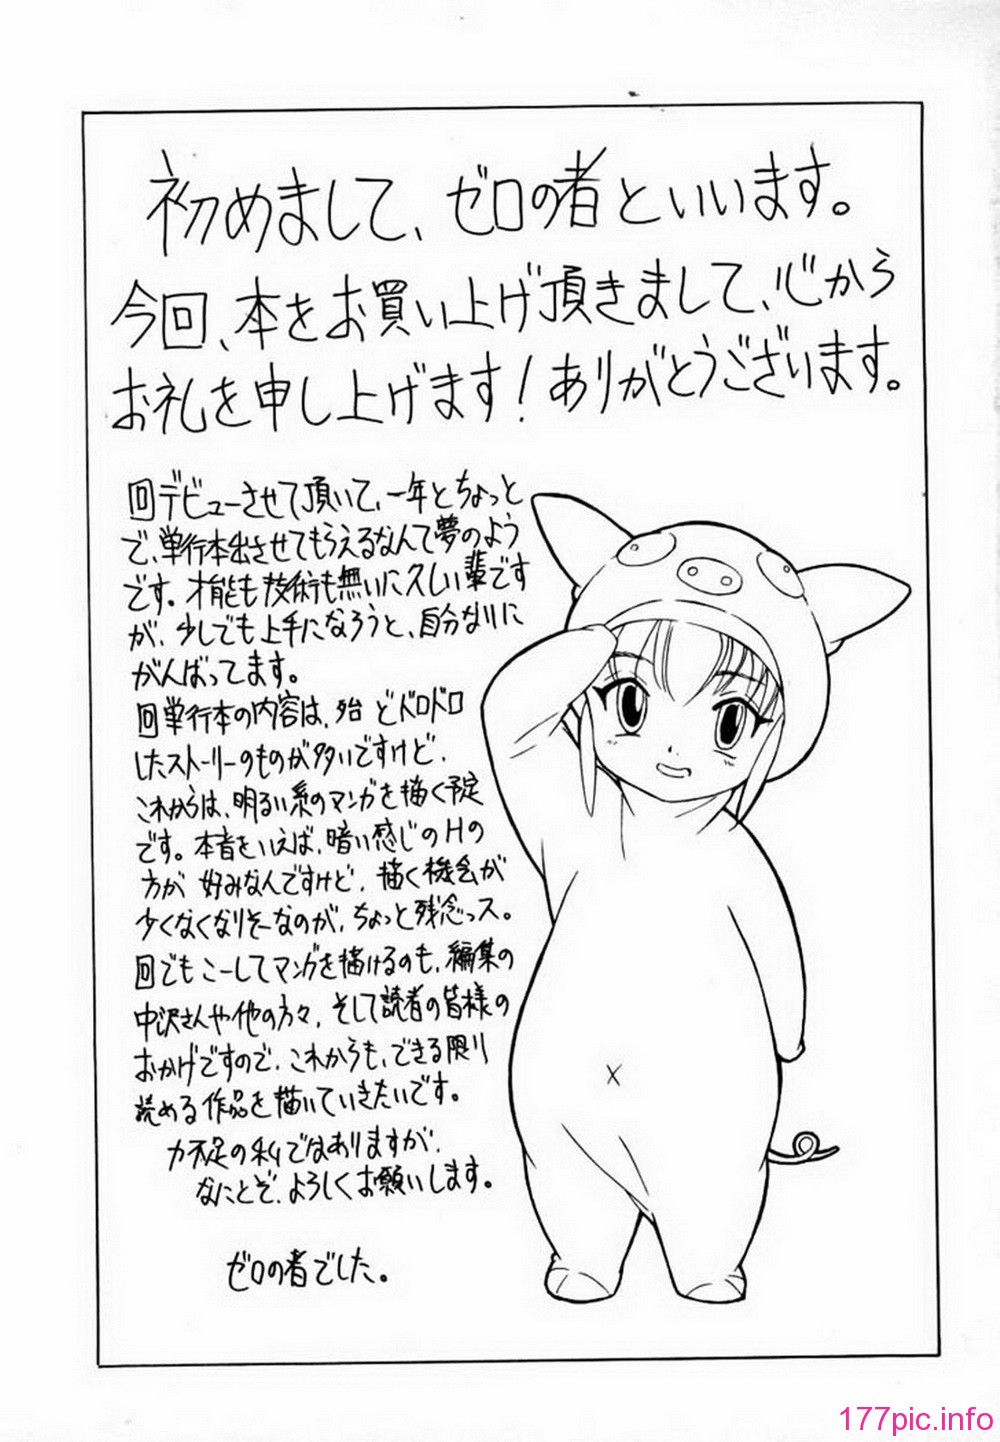 初めまして、ゼロの者といいます。
今回、本をお買い上げ頂きまして、心から
お礼を申し上げます!ありがとうございます。
回デビューさせて頂いて、一年とちょっと
で、単行本出させてもらえるなんて夢のよう
です。才能も技術も無いに久しい輩です
が、少しでも上手になろうと、自分なりに
がんばってます。
回単行本の内容は、殆どドロドロ
したストーリーのものが多いですけど、
これからは、明るい系のマンガを描く予定
です。本音をいえば、暗い感じのHの
方が好みなんですけど、描く機会が
少くなくなりそーなのが、ちょっと残念っス。
回でもこーしてマンガを描けるのも、編集の
中沢さんや他の方々、そして読者の皆様の
おかげですので、これからも、できる限り
読める作品を描いていきたいです。
力不足の私ではありますが、
なにとぞ、よろしくお願いします。
ゼロの者でした。
177pic.info